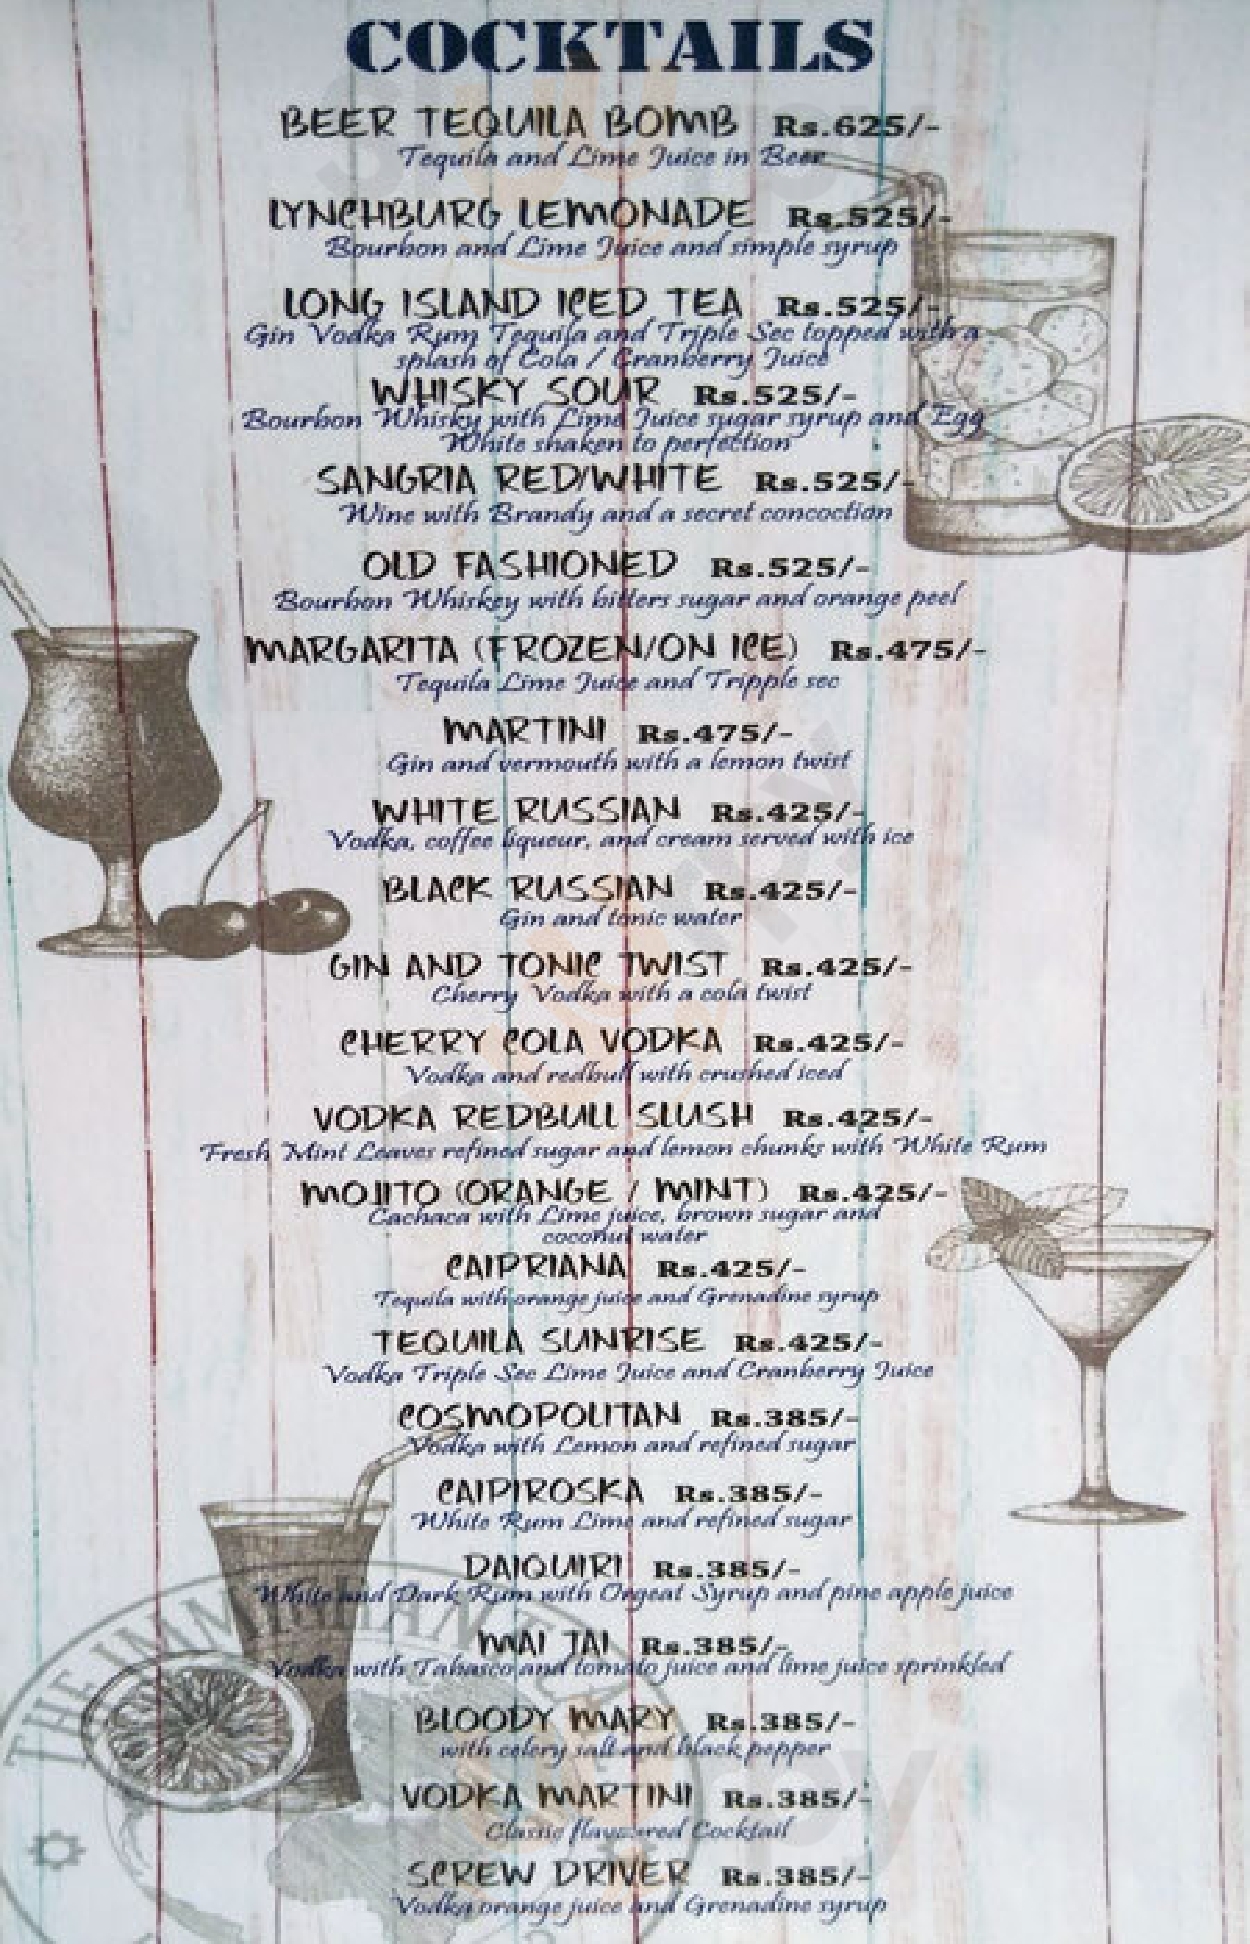 COCKTAILS
BEER TEQUILA BOMB Rs.625/-
Tequila and Lime Juice in Beer
LYNCHBURG LEMONADE Rs.525/-
Bourbon and Lime Juice and simple syrup
LONG ISLAND ICED TEA Rs.525/-
Gin Vodka Rum Tequila and Triple Sec topped with a
splash of Cola / Cranberry Juice
WHISKY SOUR Rs.525/-
Bourbon Whisky with Lime Juice sugar syrup and Egg
White shaken to perfection
SANGRIA RED/WHITE Rs.525/-
Wine with Brandy and a secret concoction
OLD FASHIONED Rs.525/-
Bourbon Whiskey with bitters sugar and orange peel
MARGARITA (FROZEN/ON ICE) Rs.475/-
Tequila Lime Juice and Tripple sec
MARTINI Rs.475/-
Gin and vermouth with a lemon twist
WHITE RUSSIAN Rs.425/-
Vodka, coffee liqueur, and cream served with ice
BLACK RUSSIAN Rs.425/-
Gin and tonic water
GIN AND TONIC TWIST Rs.425/-
Cherry Vodka with a cola twist
CHERRY COLA VODKA Rs.425/-
Vodka and redbull with crushed iced
VODKA REDBULL SLUSH Rs.425/-
Fresh Mint Leaves refined sugar and lemon chunks with White Rum
MOJITO (ORANGE / MINT) Rs.425/-
Cachaca with Lime juice, brown sugar and
coconut water
CAIPRIANA Rs.425/-
Tequila with orange juice and Grenadine syrup
TEQUILA SUNRISE Rs.425/-
Vodka Triple Sec Lime Juice and Cranberry Juice
COSMOPOLITAN Rs.385/-
Vodka with Lemon and refined sugar
CAIPIROSKA Rs.385/-
White Rum Lime and refined sugar
DAIQUIRI Rs.385/-
White and Dark Rum with Orgeat Syrup and pine apple juice
MAI TAI Rs.385/-
Vodka with Tabasco and tomato juice and lime juice sprinkled
BLOODY MARY Rs.385/-
with celery salt and black pepper
VODKA MARTINI Rs.385/-
Classic flavoured Cocktail
SCREW DRIVER Rs.385/-
Vodka orange juice and Grenadine syrup
THE IMMIGRANT